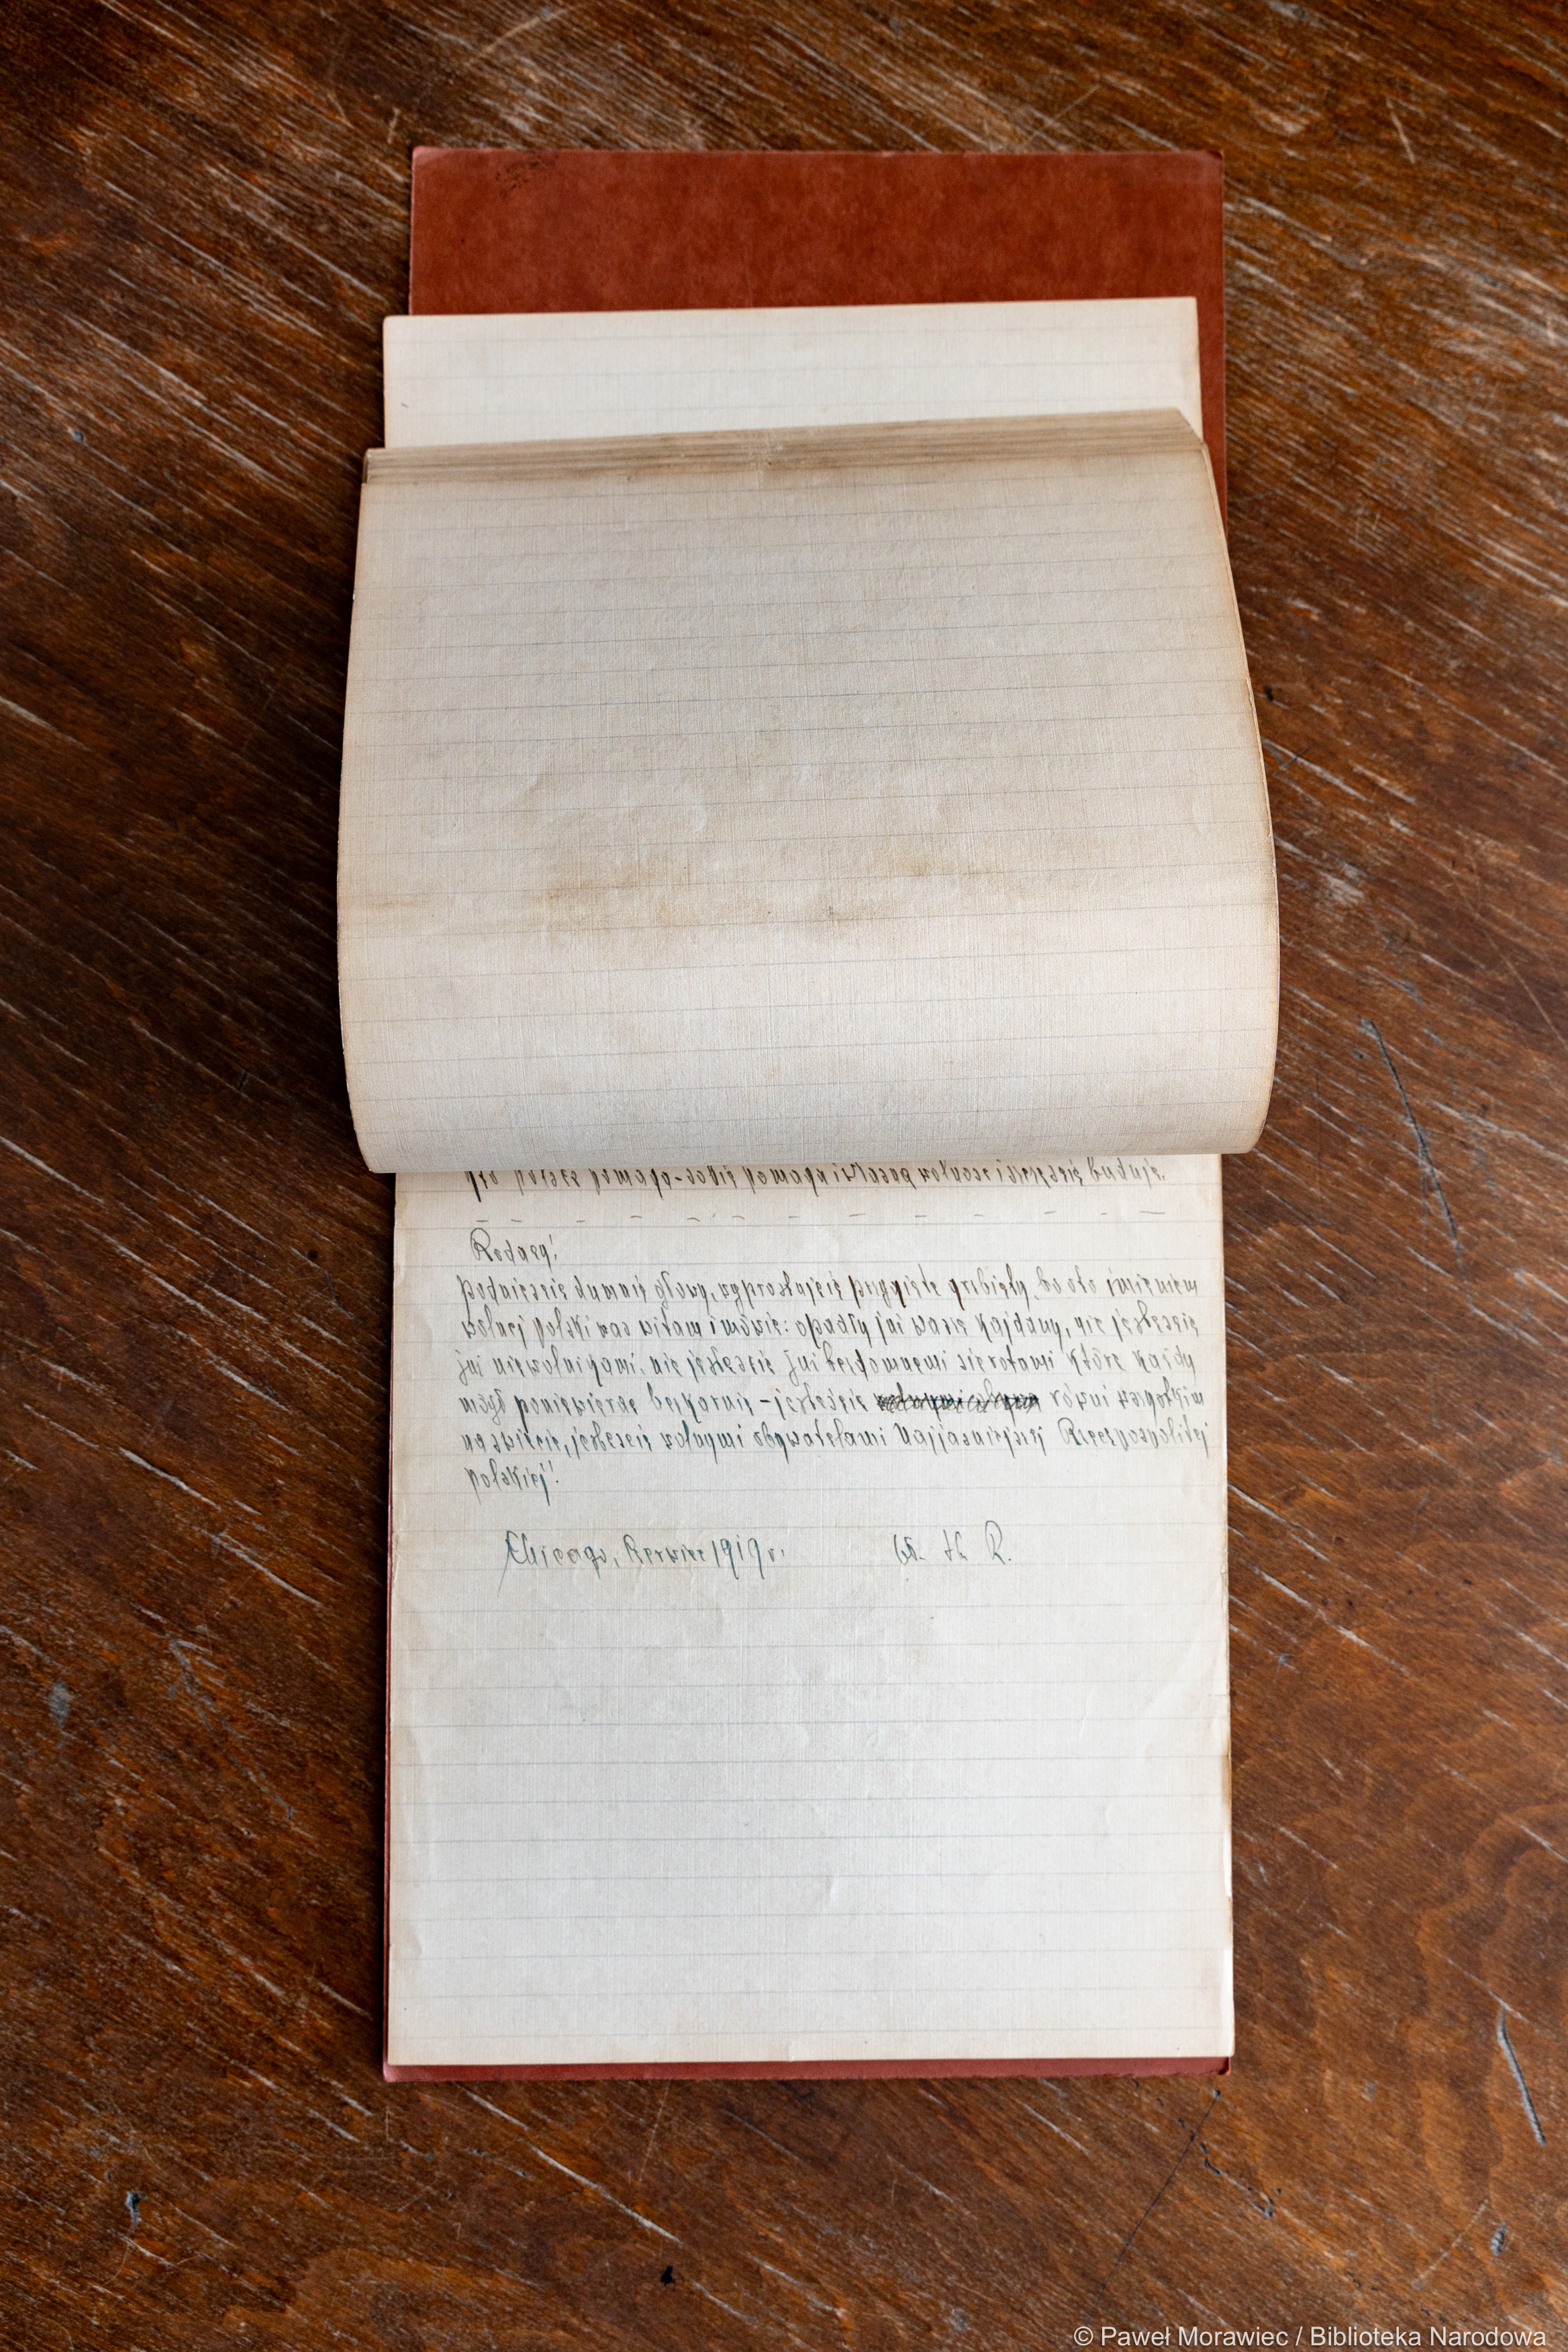 Kto polsce pomaga - sobie pomaga i własną wolność i szczęście buduje.
Rodacy!
podnieście dumnie głowy, wyprostujcie przygięte grzbiety, bo oto imieniem
wolnej polski was witam i mówię: opadły już wasze kajdany, nie jesteście
już niewolnikami, nie jesteście już bezdomnemi sierotami które każdy
mógł poniewierać bezkarnie - jesteście równi wszystkim
na świecie, jesteście wolnymi obywatelami Najjaśniejszej Rzeczypospolitej
polskiej!
Chicago, Czerwiec 1919 r. Wł. St. R.
© Paweł Morawiec / Biblioteka Narodowa